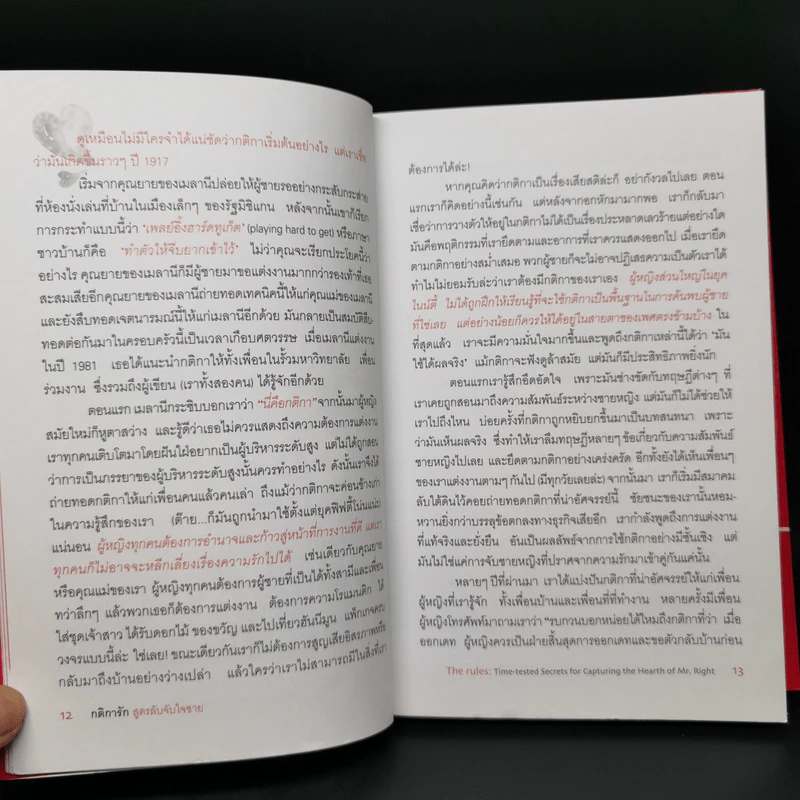 ดูเหมือนไม่มีใครจำได้แน่ชัดว่ากติกาเริ่มต้นอย่างไร แต่เราเชื่อ
ว่ามันเกิดขึ้นราวๆ ปี 1917
เริ่มจากคุณยายของเมลานีปล่อยให้ผู้ชายรออย่างกระสับกระส่าย
ที่ห้องนั่งเล่นที่บ้านในเมืองเล็กๆ ของรัฐมิชิแกน หลังจากนั้นเขาก็เรียก
การกระทำแบบนี้ว่า ‘เพลย์อิ้งฮาร์ดทูเก็ต’ (playing hard to get) หรือภาษา
ชาวบ้านก็คือ ‘ทำตัวให้จีบยากเข้าไว้’ ไม่ว่าคุณจะเรียกประโยคนี้ว่า
อย่างไร คุณยายของเมลานีก็มีผู้ชายมาขอแต่งงานมากกว่ารองเท้าที่เธอ
สะสมเสียอีกคุณยายของเมลานีถ่ายทอดเทคนิคนี้ให้แก่คุณแม่ของเมลานี
และยังสืบทอดเจตนารมณ์นี้ให้แก่เมลานีอีกด้วย มันกลายเป็นสมบัติสืบ-
ทอดต่อกันมาในครอบครัวนี้เป็นเวลาเกือบศตวรรษ เมื่อเมลานีแต่งงาน
ในปี 1981 เธอได้แนะนำกติกาให้ทั้งเพื่อนในรั้วมหาวิทยาลัย เพื่อน
ร่วมงาน ซึ่งรวมถึงผู้เขียน (เราทั้งสองคน) ได้รู้จักอีกด้วย
ตอนแรก เมลานีกระซิบบอกเราว่า “นี่คือกติกา”จากนั้นมาผู้หญิง
สมัยใหม่ก็หูตาสว่าง และรู้ดีว่าเธอไม่ควรแสดงถึงความต้องการแต่งงาน
เราทุกคนเติบโตมาโดยฝันใฝ่อยากเป็นผู้บริหารระดับสูง แต่ไม่ได้ถูกสอน
ว่าการเป็นภรรยาของผู้บริหารระดับสูงนั้นควรทำอย่างไร ดังนั้นเราจึงได้
ถ่ายทอดกติกาให้แก่เพื่อนคนแล้วคนเล่า ถึงแม้ว่ากติกาจะค่อนข้างเก่า
ในความรู้สึกของเรา (ต๊าย...ก็มันถูกนำมาใช้ตั้งแต่ยุคฟิฟตี้โน่นแน่ะ)
แน่นอน ผู้หญิงทุกคนต้องการอำนาจและก้าวสู่หน้าที่การงานที่ดี แต่เรา
ทุกคนก็ไม่อาจจะหลีกเลี่ยงเรื่องความรักไปได้ เช่นเดียวกับคุณยาย
หรือคุณแม่ของเรา ผู้หญิงทุกคนต้องการผู้ชายที่เป็นได้ทั้งสามีและเพื่อน
ทว่าลึกๆ แล้วพวกเธอก็ต้องการแต่งงาน ต้องการความโรแมนติก ได้
ใส่ชุดเจ้าสาว ได้รับดอกไม้ ของขวัญ และไปเที่ยวฮันนีมูน แพ็กเกจครบ
วงจรแบบนี้ล่ะ ใช่เลย! ขณะเดียวกันเราก็ไม่ต้องการสูญเสียอิสรภาพหรือ
กลับมาถึงบ้านอย่างว่างเปล่า แล้วใครว่าเราไม่สามารถมีในสิ่งที่เรา
12 กติการัก สูตรลับจับใจชาย
ต้องการได้ล่ะ!
หากคุณคิดว่ากติกาเป็นเรื่องเสียสติล่ะก็ อย่ากังวลไปเลย ตอน
แรกเราก็คิดอย่างนี้เช่นกัน แต่หลังจากอกหักมามากพอ เราก็กลับมา
เชื่อว่าการวางตัวให้อยู่ในกติกาไม่ได้เป็นเรื่องประหลาดเลวร้ายแต่อย่างใด
มันคือพฤติกรรมที่เรายึดตามและอาการที่เราควรแสดงออกไป เมื่อเรายึด
ตามกติกาอย่างสม่ำเสมอ พวกผู้ชายก็จะไม่อาจปฏิเสธความเป็นตัวเราได้
ทำไมไม่ยอมรับล่ะว่าเราต้องมีกติกาของเราเอง ผู้หญิงส่วนใหญ่ในยุค
ไนน์ตี้ ไม่ได้ถูกฝึกให้เรียนรู้ที่จะใช้กติกาเป็นพื้นฐานในการค้นพบผู้ชาย
ที่ใช่เลย แต่อย่างน้อยก็ควรให้ได้อยู่ในสายตาของเพศตรงข้ามบ้าง ใน
ที่สุดแล้ว เราจะมีความมั่นใจมากขึ้นและพูดถึงกติกาเหล่านี้ได้ว่า ‘มัน
ใช้ได้ผลจริง’ แม้กติกาจะฟังดูล้าสมัย แต่มันก็มีประสิทธิภาพยิ่งนัก
ตอนแรกเรารู้สึกอึดอัดใจ เพราะมันช่างขัดกับทฤษฎีต่างๆ ที่
เราเคยถูกสอนมาถึงความสัมพันธ์ระหว่างชายหญิง แต่มันก็ไม่ได้ช่วยให้
เราไปถึงไหน บ่อยครั้งที่กติกาถูกหยิบยกขึ้นมาเป็นบทสนทนา เพราะ
ว่ามันเห็นผลจริง ซึ่งทำให้เราลืมทฤษฎีหลายๆ ข้อเกี่ยวกับความสัมพันธ์
ชายหญิงไปเลย และยึดตามกติกาอย่างเคร่งครัด อีกทั้งยังได้เห็นเพื่อนๆ
ของเราแต่งงานตามๆ กันไป (มีทุกวัยเลยล่ะ) จากนั้นมา เราก็เริ่มมีสมาคม
ลับใต้ดินไว้คอยถ่ายทอดกติกาที่น่าอัศจรรย์นี้ ชัยชนะของเรานั้นหอม-
หวานยิ่งกว่าบรรลุข้อตกลงทางธุรกิจเสียอีก เรากำลังพูดถึงการแต่งงาน
ที่แท้จริงและยั่งยืน อันเป็นผลลัพธ์จากการใช้กติกาอย่างมีชั้นเชิง แต่
มันไม่ใช่แค่การจับชายหญิงที่ปราศจากความรักมาเข้าคู่กันแค่นั้น
หลายๆ ปีที่ผ่านมา เราได้แบ่งปันกติกาที่น่าอัศจรรย์ให้แก่เพื่อน
ผู้หญิงที่เรารู้จัก ทั้งเพื่อนบ้านและเพื่อนที่ที่ทำงาน หลายครั้งมีเพื่อน
ผู้หญิงโทรศัพท์มาถามเราว่า “รบกวนบอกหน่อยได้ไหมถึงกติกาที่ว่า เมื่อ
ออกเดท ผู้หญิงควรเป็นฝ่ายสิ้นสุดการออกเดทและขอตัวกลับบ้านก่อน
The rules: Time-tested Secrets for Capturing the Hearth of Mr. Right 13